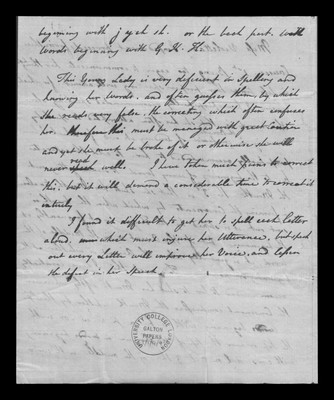 beginning with j y ch sh. or the back part. with
Words beginning with G. K. H.
This Young Lady is very deficient in Spelling and
knowing her Words. and often guesses them, by which
she reads very false, the correcting which often confuses
her. Therefore this must be managed with great Caution
and yet she must be broke of it or otherwise she will
never read well. I have taken much pains to correct
this, but it will demand a considerable time to correct it
intirely
I found it difficult to get her to spell each Letter
aloud. which must injure her Utterance, but spell
out every Letter will improve her Voice, and lessen
the defect in her Speech
UNIVERSITY COLLEGE LONDON
GALTON
PAPERS